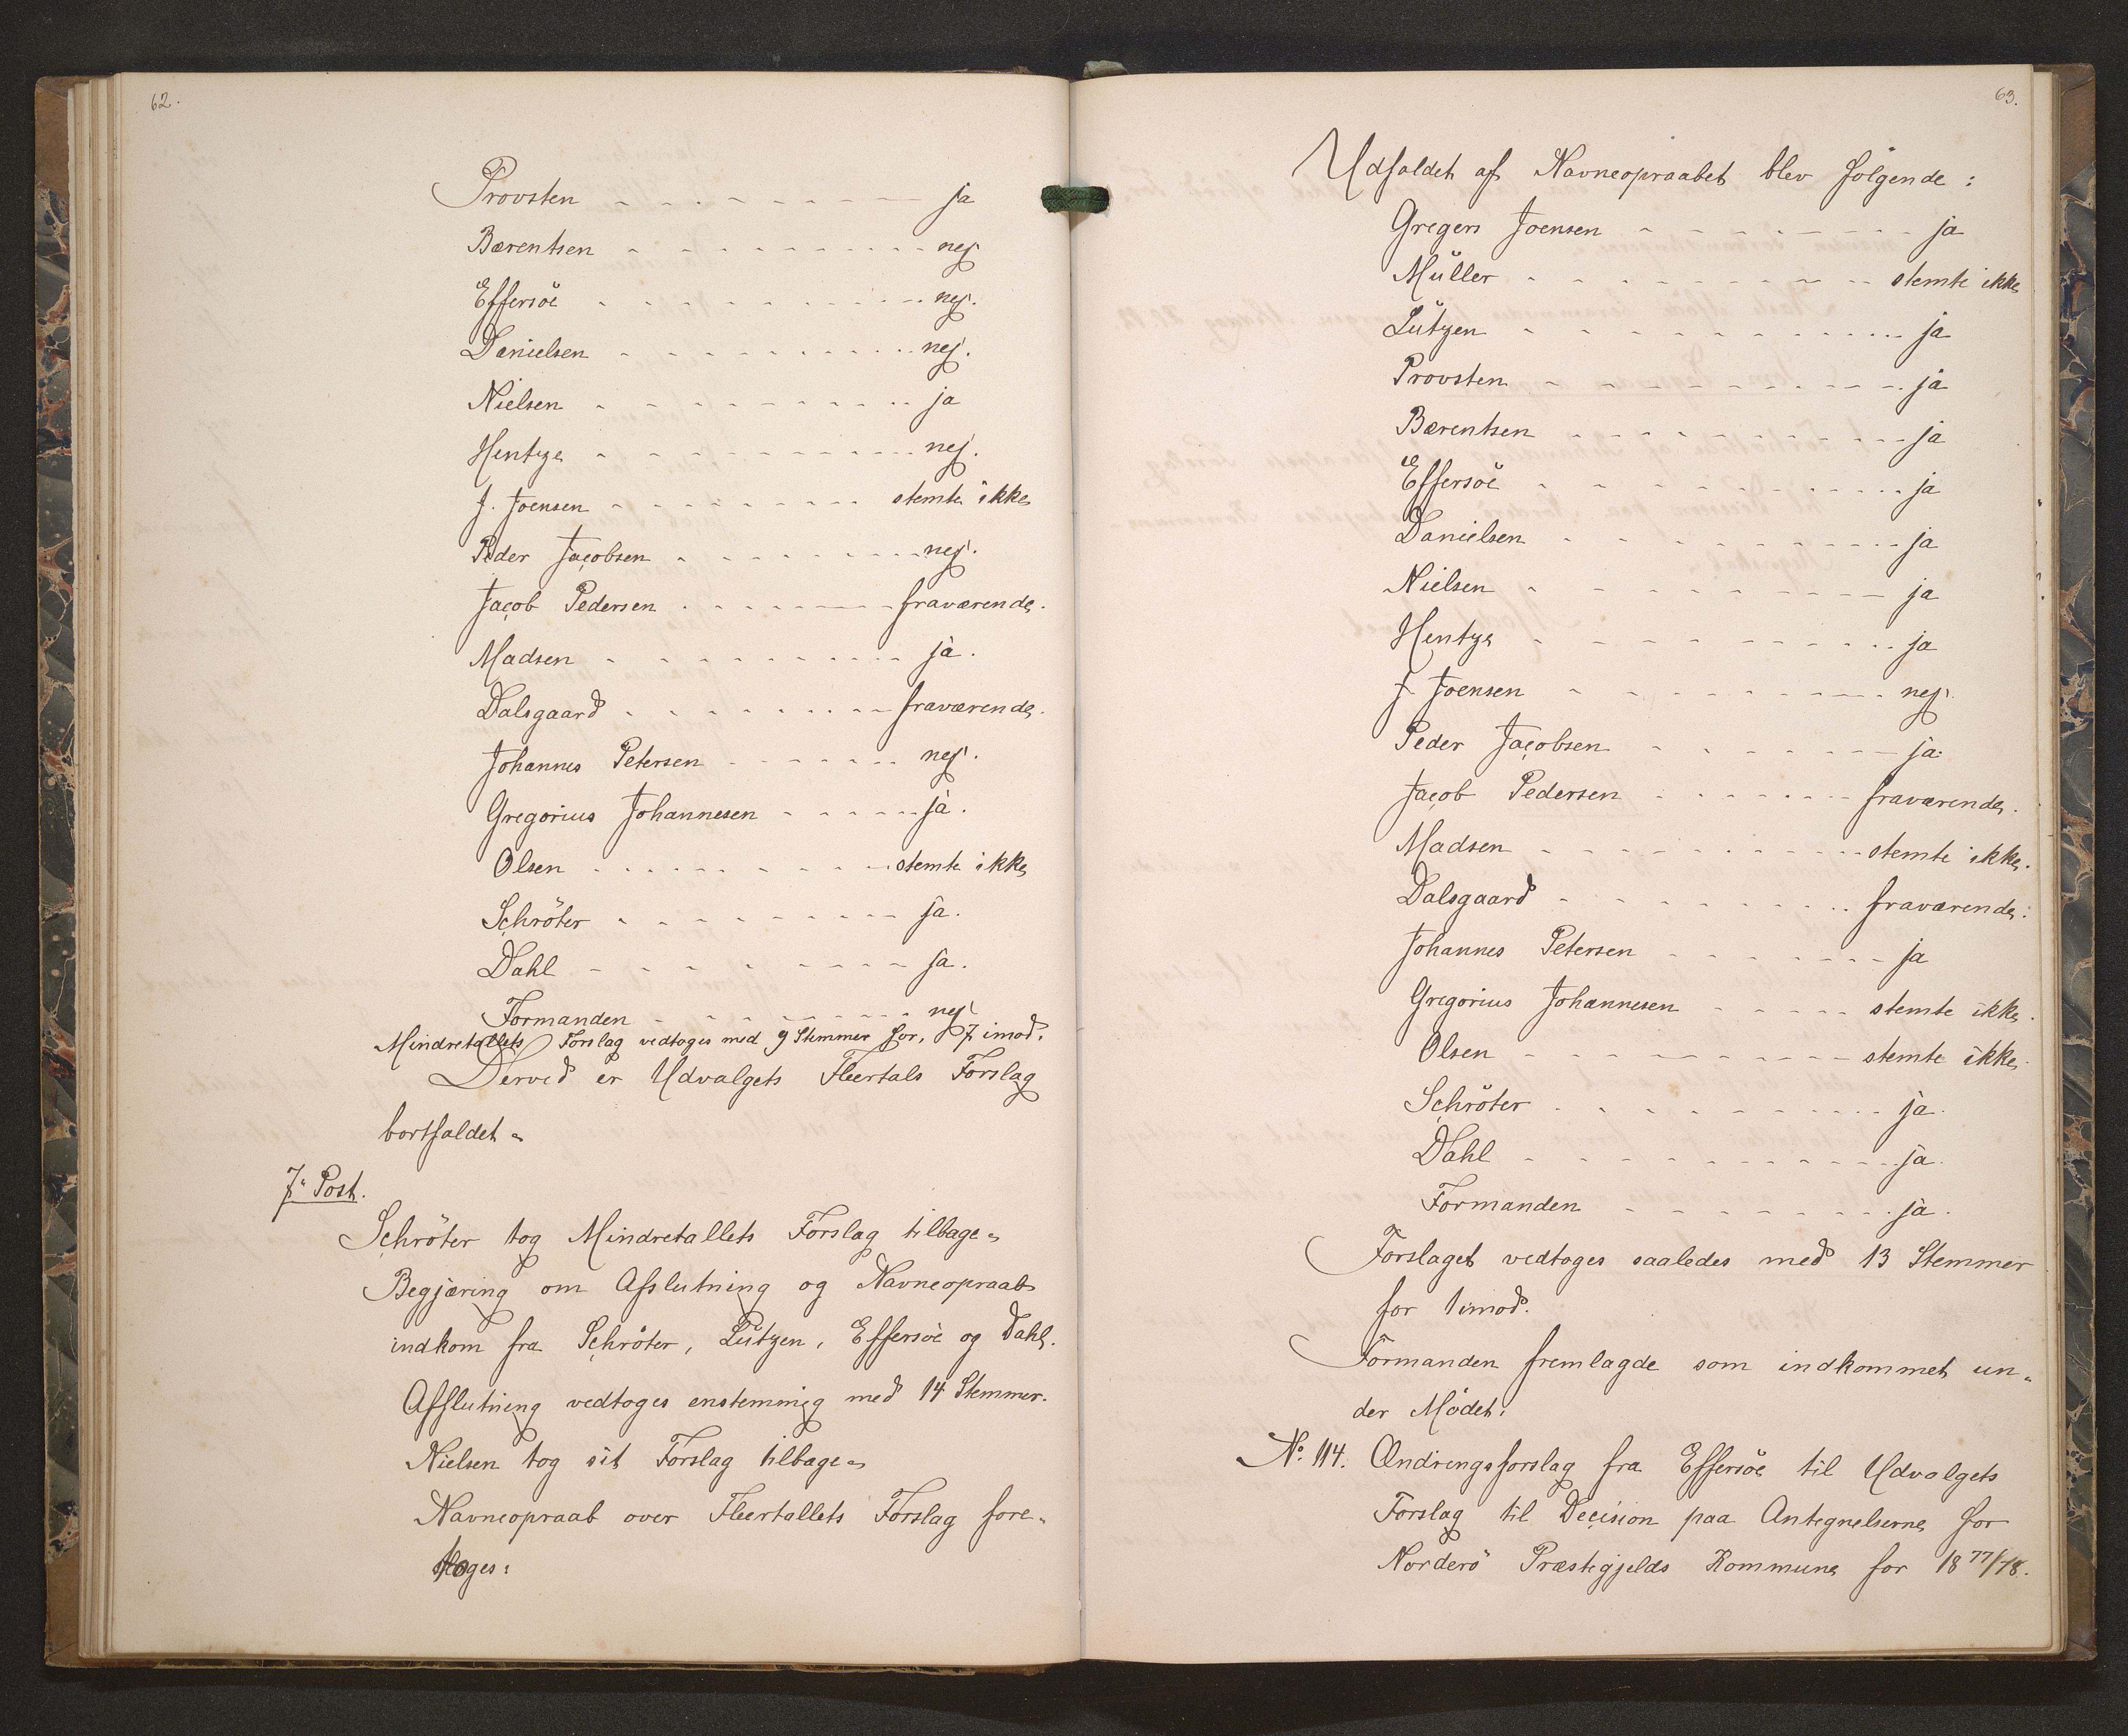 62.
Provsten - - - - - - - - - - ja
Bærentsen - - - - - - - - - - nej
Effersöe - - - - - - - - - - nej.
Danielsen - - - - - - - - - - nej.
Nielsen - - - - - - - - - - ja
Hentze - - - - - - - - - - nej.
J. Joensen - - - - - - - - - stemte ikke
Peder Jacobsen - - - - - - - - nej.
Jacob Pedersen - - - - - - - fraværende.
Madsen - - - - - - - - - - ja.
Dalsgaard - - - - - - - - fraværende.
Johannes Petersen - - - - - - nej.
Gregorius Johannesen - - - - - ja.
Olsen - - - - - - - - - stemte ikke
Schröter - - - - - - - - - ja.
Dahl - - - - - - - - - ja.
Formanden - - - - - - - - nej
Mindretallets Forslag vedtoges med 9 Stemmer for, 7 imod.
Derved er Udvalgets Fleertals Forslag
bortfaldet.
7. Post.
Schröter tog Mindretallets Forslag tilbage.
Begjæring om Afslutning og Navneopraab
indkom fra Schröter, Lützen, Effersöe og Dahl.
Afslutning vedtoges enstemmig med 14 Stemmer.
Nielsen tog sit Forslag tilbage.
Navneopraab over Fleertallets Forslag fore-
toges:
63.
Udfaldet af Navneopraabet blev følgende:
Gregers Joensen - - - - - - - - ja
Müller - - - - - - - - - stemte ikke
Lützen - - - - - - - - - - ja
Provsten - - - - - - - - - - ja
Bærentsen - - - - - - - - - - ja
Effersöe - - - - - - - - - - ja
Danielsen - - - - - - - - - - ja
Nielsen - - - - - - - - - - ja
Hentze - - - - - - - - - - ja
J. Joensen - - - - - - - - - nej.
Peder Jacobsen - - - - - - - ja.
Jacob Pedersen - - - - - - - fraværende.
Madsen - - - - - - - - - stemte ikke.
Dalsgaard - - - - - - - - - fraværende.
Johannes Petersen - - - - - - - ja
Gregorius Johannesen - - - - - stemte ikke.
Olsen - - - - - - - - - stemte ikke.
Schröter - - - - - - - - - ja.
Dahl - - - - - - - - - - ja.
Formanden - - - - - - - - ja.
Forslaget vedtoges saaledes med 13 Stemmer
for 1 imod.
Formanden fremlagde som indkommet un-
der Mödet:
No. 114. Ændringsforslag fra Effersöe til Udvalgets
Forslag til Decision paa Antegnelserne for
Norderö Præstegjelds Kommune for 1877/78.